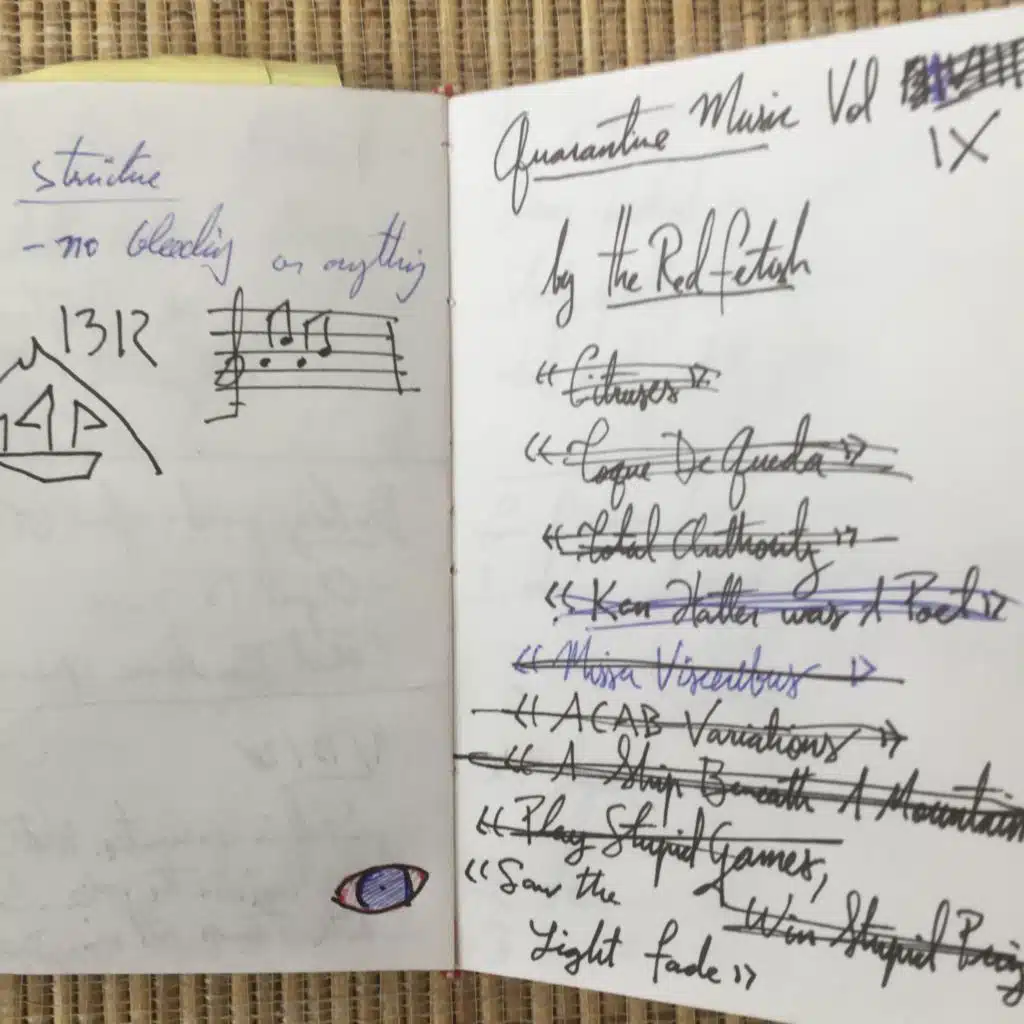 structure
- no bleeding or anything
1312
Quarantine Music Vol
IX
by the Red Fetish
« Citruses »
« Toque De Queda »
« Total Authority »
« Ken Hatter was A Poet »
« Missa Visceribus »
« ACAB Variations »
« A Ship Beneath A Mountain
« Play Stupid Games,
Win Stupid
« Saw the
Light fade »